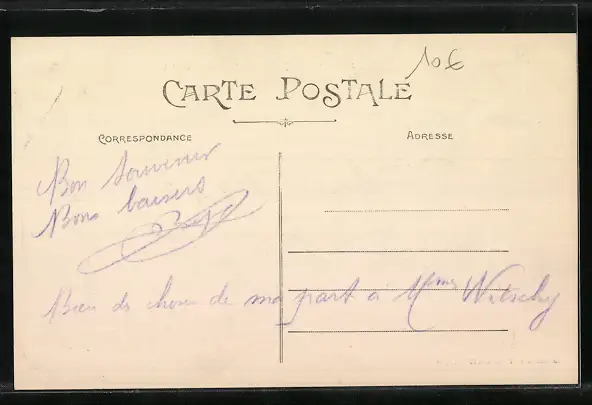 10€
CARTE POSTALE
CORRESPONDANCE
ADRESSE
Bon souvenir
Bons baisers
Bien ds choses de ma part à Mmes Witschy